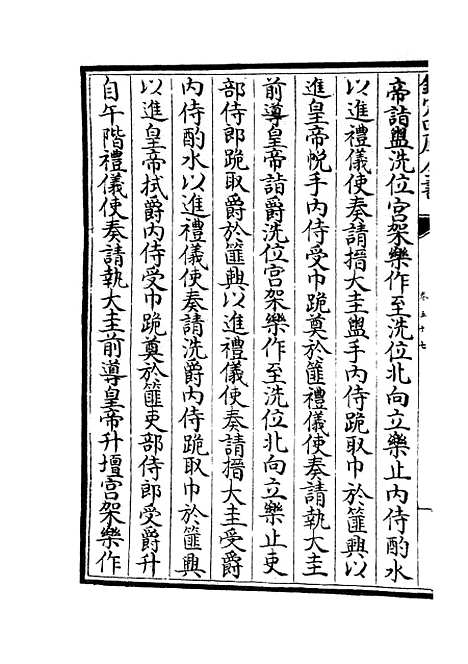 帝詣盥洗位宮架樂作至洗位北向立樂止内侍酌水
以進禮儀使奏請搢大圭盥手内侍跪取巾於篚興以
進皇帝帨手内侍受巾跪奠於篚禮儀使奏請執大圭
前導皇帝詣爵洗位宮架樂作至洗位北向立樂止吏
部侍郎跪取爵於篚興以進禮儀使奏請搢大圭受爵
内侍酌水以進禮儀使奏請洗爵内侍跪取巾於篚興
以進皇帝拭爵内侍受巾跪奠於篚吏部侍郎受爵升
自午階禮儀使奏請執大圭前導皇帝升壇宮架樂作
卷五十七